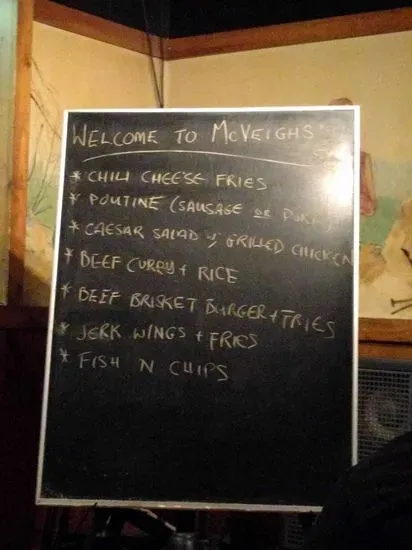 WELCOME TO McVEIGHS'
* CHILI CHEESE FRIES
* POUTINE (SAUSAGE OR PORK)
* CAESAR SALAD w/ GRILLED CHICKEN
* BEEF CURRY + RICE
* BEEF BRISKET BURGER + FRIES
* JERK WINGS + FRIES
* FISH N CHIPS